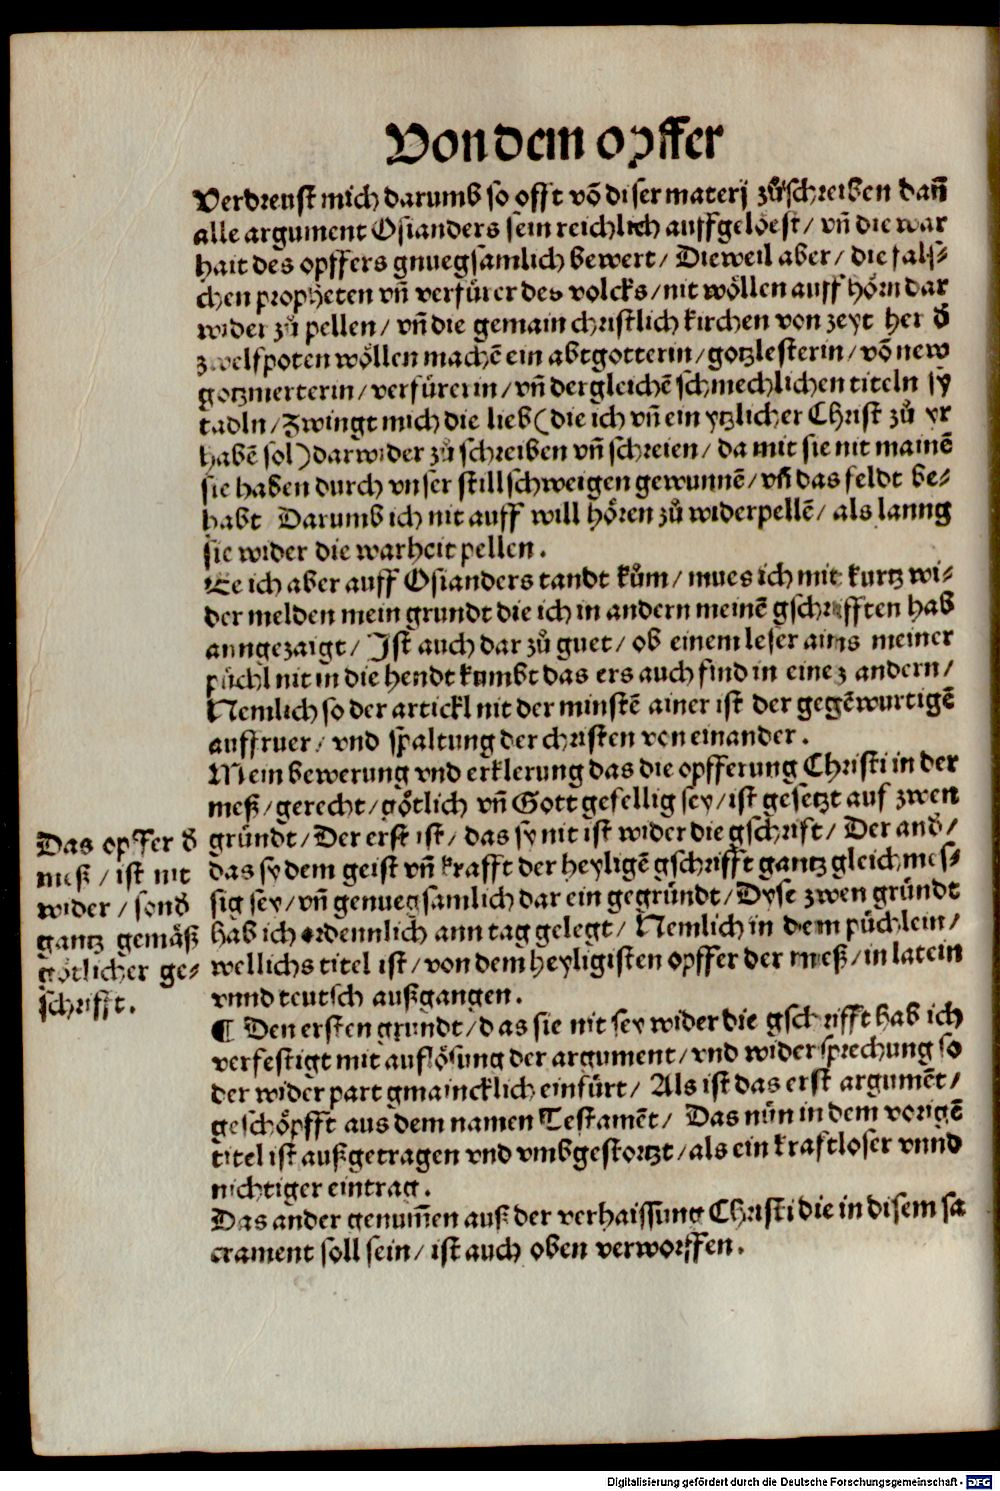 Von dem opffer
Verdreust mich darumb so offt võ diser materj zůschreiben dañ
alle argument Osianders sein reichlich auffgelöest / vñ die war
hait des opffers gnuegsamlich bewert / Dieweil aber / die fals-
chen propheten vñ verfürer des volcks / nit wöllen auff hörn dar
wider zů pellen / vñ die gemain christlich kirchen von zeyt her đ
zwelfpoten wöllen machẽ ein abtgotterin / gotzlesterin / võ new
gotzmerterin / verfürerin / vñ dergleichẽ schmechlichen titeln sy
tadln / Zwingt mich die lieb (die ich vñ ein ytzlicher Christ zů yr
habẽ sol) darwider zů schreiben vñ schreien / da mit sie nit mainẽ
sie haben durch vnser stillschweigen gewunnẽ / vñ das feldt be-
habt Darumb ich nit auff will hören zů widerpellẽ / als lanng
sie wider die warheit pellen .
Ee ich aber auff Osianders tandt kům / mues ich mit kurtz wi-
der melden mein grundt die ich in andern meinẽ gschrifften hab
anngezaigt / Ist auch dar zů guet / ob einem leser ains meiner
püchl nit in die hendt kumbt das ers auch find in einez andern /
Nemlich so der artickl nit der minstẽ ainer ist der gegẽwurtigẽ
auffruer / vnd spaltung der christen von einander .
Mein bewerung vnd erklerung das die opfferung Christi in der
meß / gerecht / götlich vñ Gott gefellig sey / ist gesetzt auf zwen
gründt / Der erst ist / das sy nit ist wider die gschrift / Der andđ /
das sy dem geist vñ krafft der heyligẽ gschrifft gantz gleich mes-
sig sey / vñ genuegsamlich dar ein gegründt / Dyse zwen gründt
hab ich ordennlich ann tag gelegt / Nemlich in dem püchlein /
wellichs titel ist / von dem heyligisten opffer der meß / in latein
vnnd teutsch außgangen .
Das opffer đ
meß / ist nit
wider / sonđ
gantz gemäß
götlicher ge-
schrifft .
¶ Den ersten grundt / das sie nit sey wider die gschrifft hab ich
verfestigt mit auflösung der argument / vnd widersprechung so
der wider part gmaincklich einfürt / Als ist das erst argumẽt /
geschöpfft aus dem namen Testamẽt / Das nůn in dem vorigẽ
titel ist außgetragen vnd vmbgestortzt / als ein kraftloser vnnd
nichtiger eintrag .
Das ander genum̃en auß der verhaissung Christi die in disem sa
crament soll sein / ist auch oben verworffen .
Digitalisierung gefördert durch die Deutsche Forschungsgemeinschaft - DFG